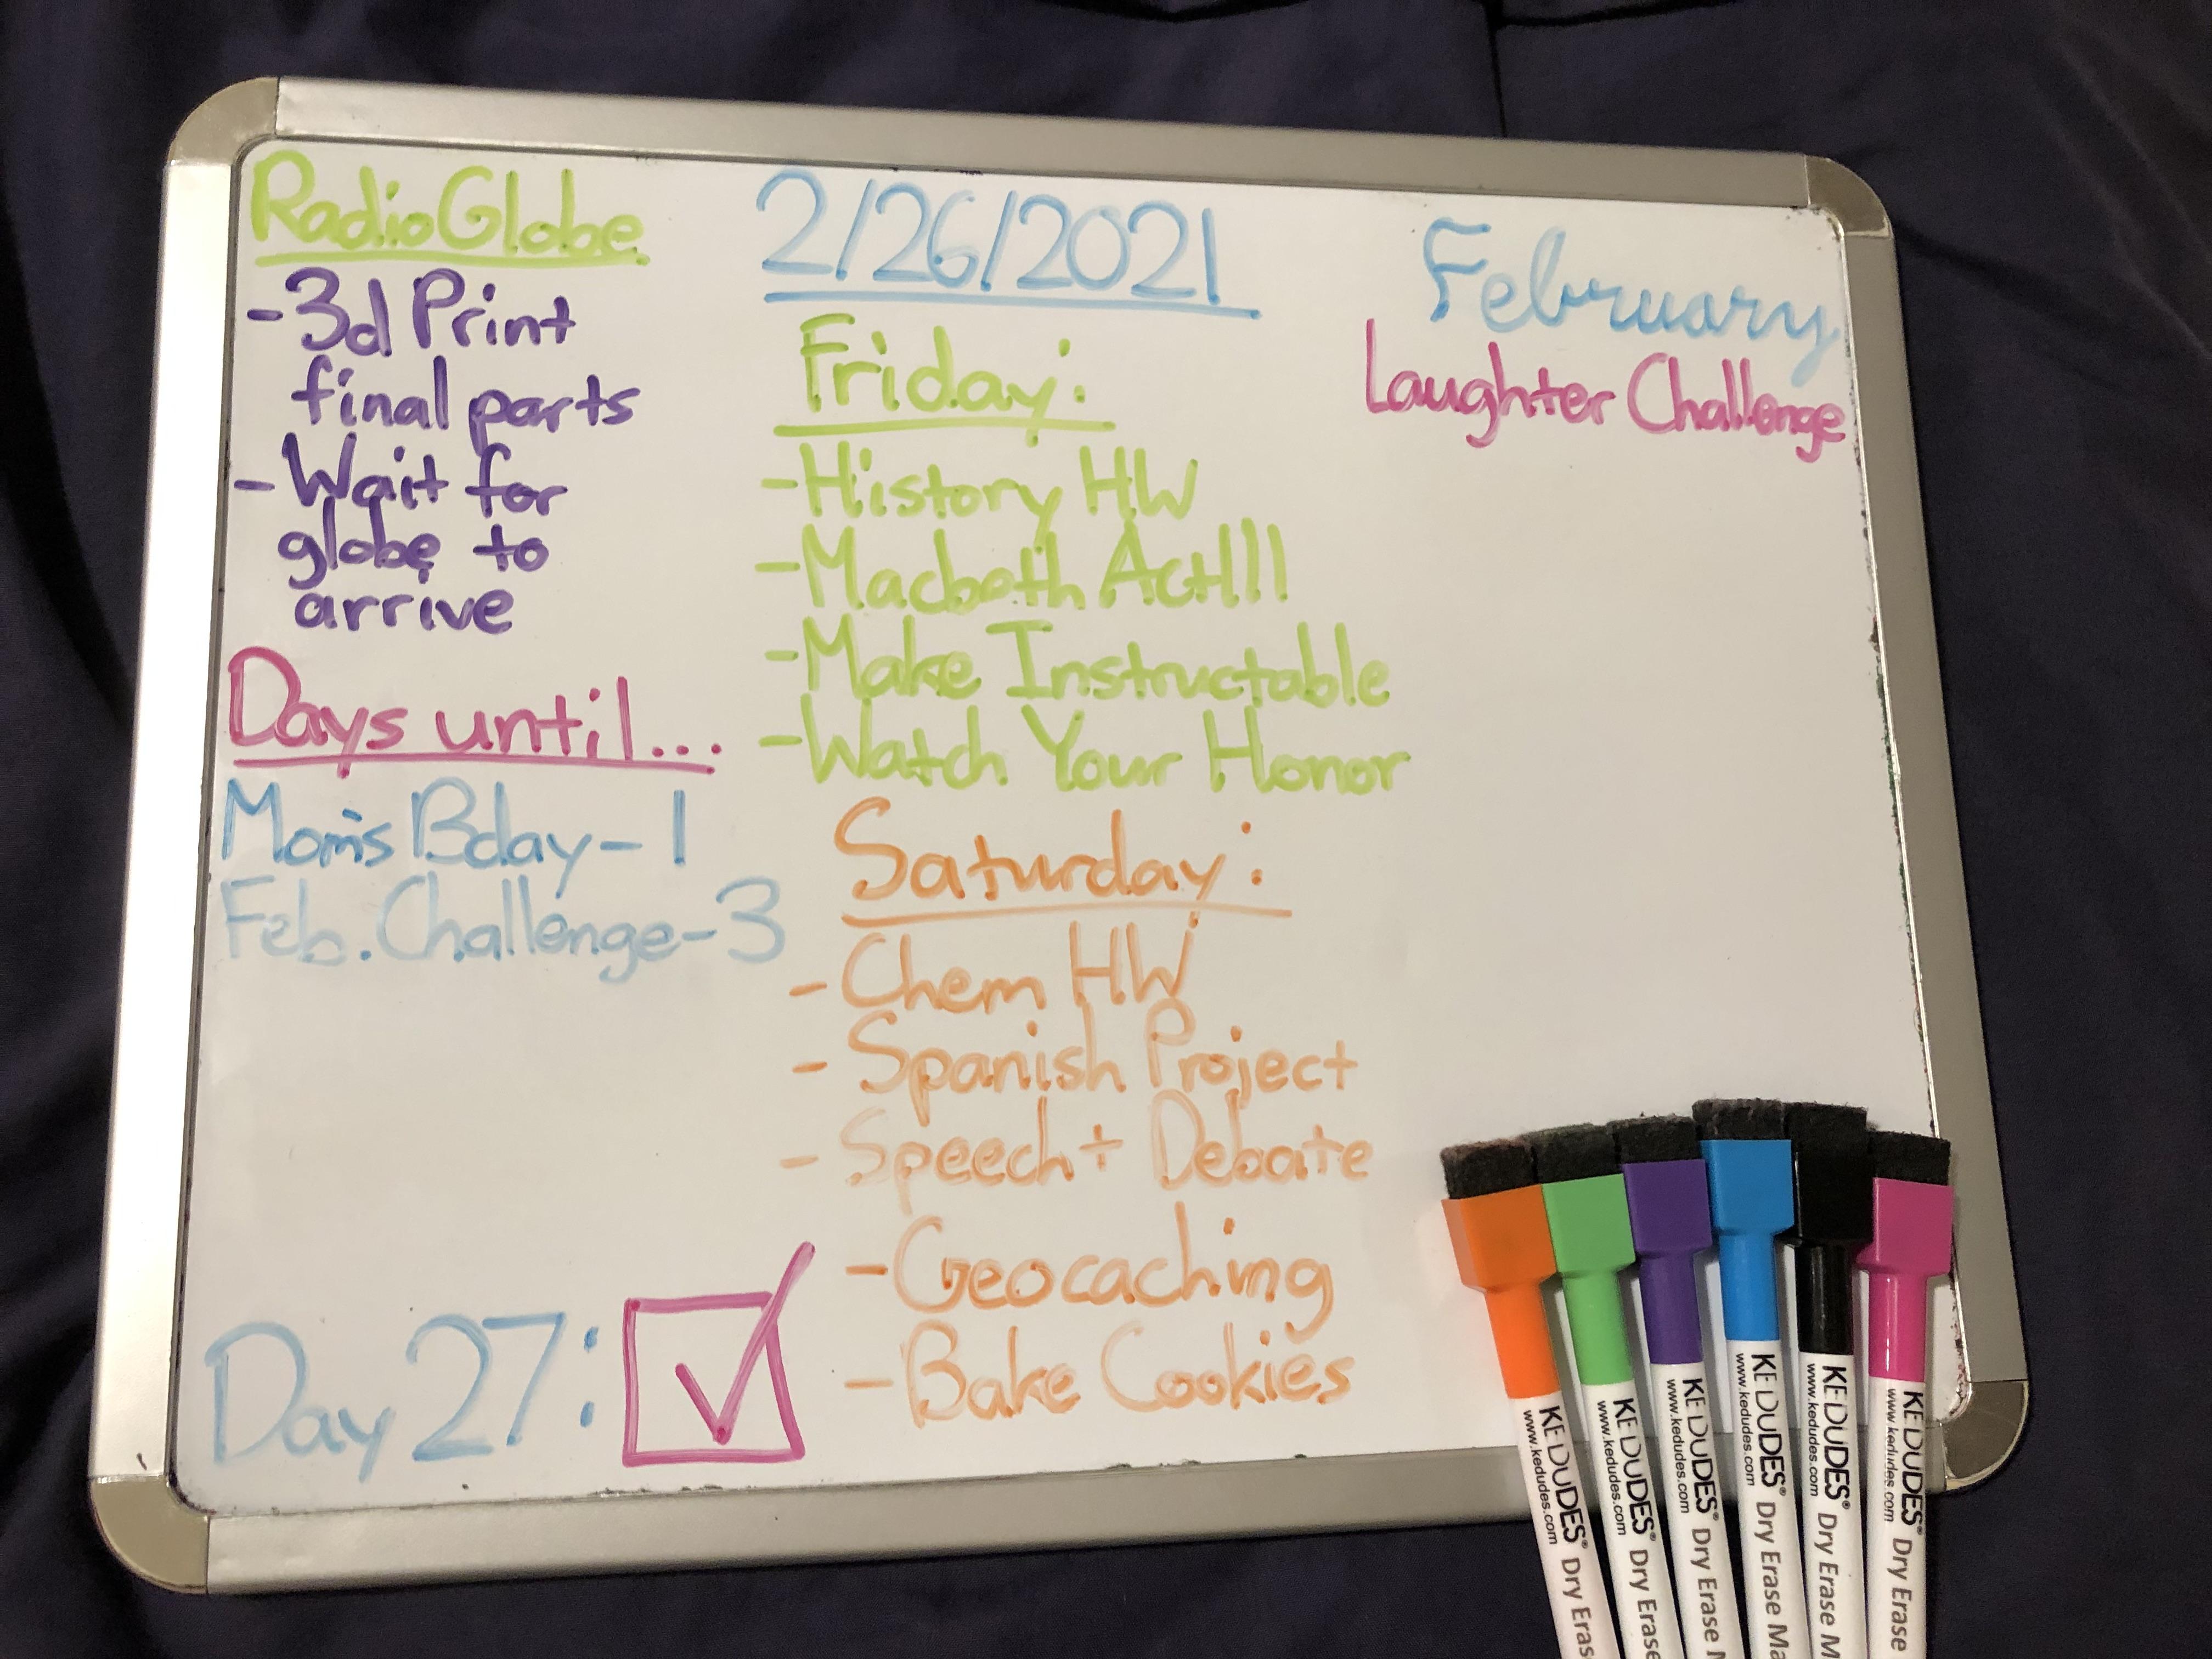 RadioGlobe
-3d Print
final parts
-Wait for
globe to
arrive
Days until...
Mom's Bday-1
Feb. Challenge-3
Day 27:
2/26/2021
Friday:
-History HW
-Macbeth Act III
-Make Instructable
-Watch Your Honor
Saturday:
-Chem HW
-Spanish Project
-Speech + Debate
-Geocaching
-Bake Cookies
February
Laughter Challenge
KEDUDES® Dry Eras
www.kedudes.com
KEDUDES® Dry Erase
www.kedudes.com
KEDUDES® Dry Erase M
www.kedudes.com
KEDUDES® Dry Erase Ma
www.kedudes.com
KEDUDES® Dry Erase M
www.kedudes.com
KEDUDES® Dry Erase
www.kedudes.com